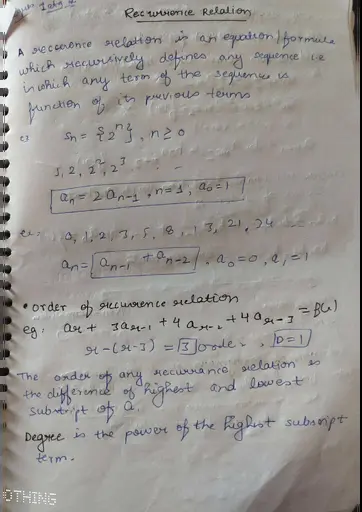 Recurrence Relation
A reccorence relation is an equation/formula
which recursively defines any sequence i.e
in which any term of the sequence is
function of its previous terms
ex Sn = {2^n}, n ≥ 0
1, 2, 2², 2³ ...
an = 2 an-1, n=1, a0=1
ex: 0, 1, 2, 3, 5, 8, 13, 21, 24 ...
an = an-1 + an-2, a0=0, a1=1
• Order of recurrence relation
eg: ar + 3ar-1 + 4ar-2 + 4ar-3 = f(r)
r-(r-3) = 3 order, D=1
The order of any recurrance relation is
the difference of highest and lowest
subsript of a.
Degree is the power of the highest subscript
term.
OTHING